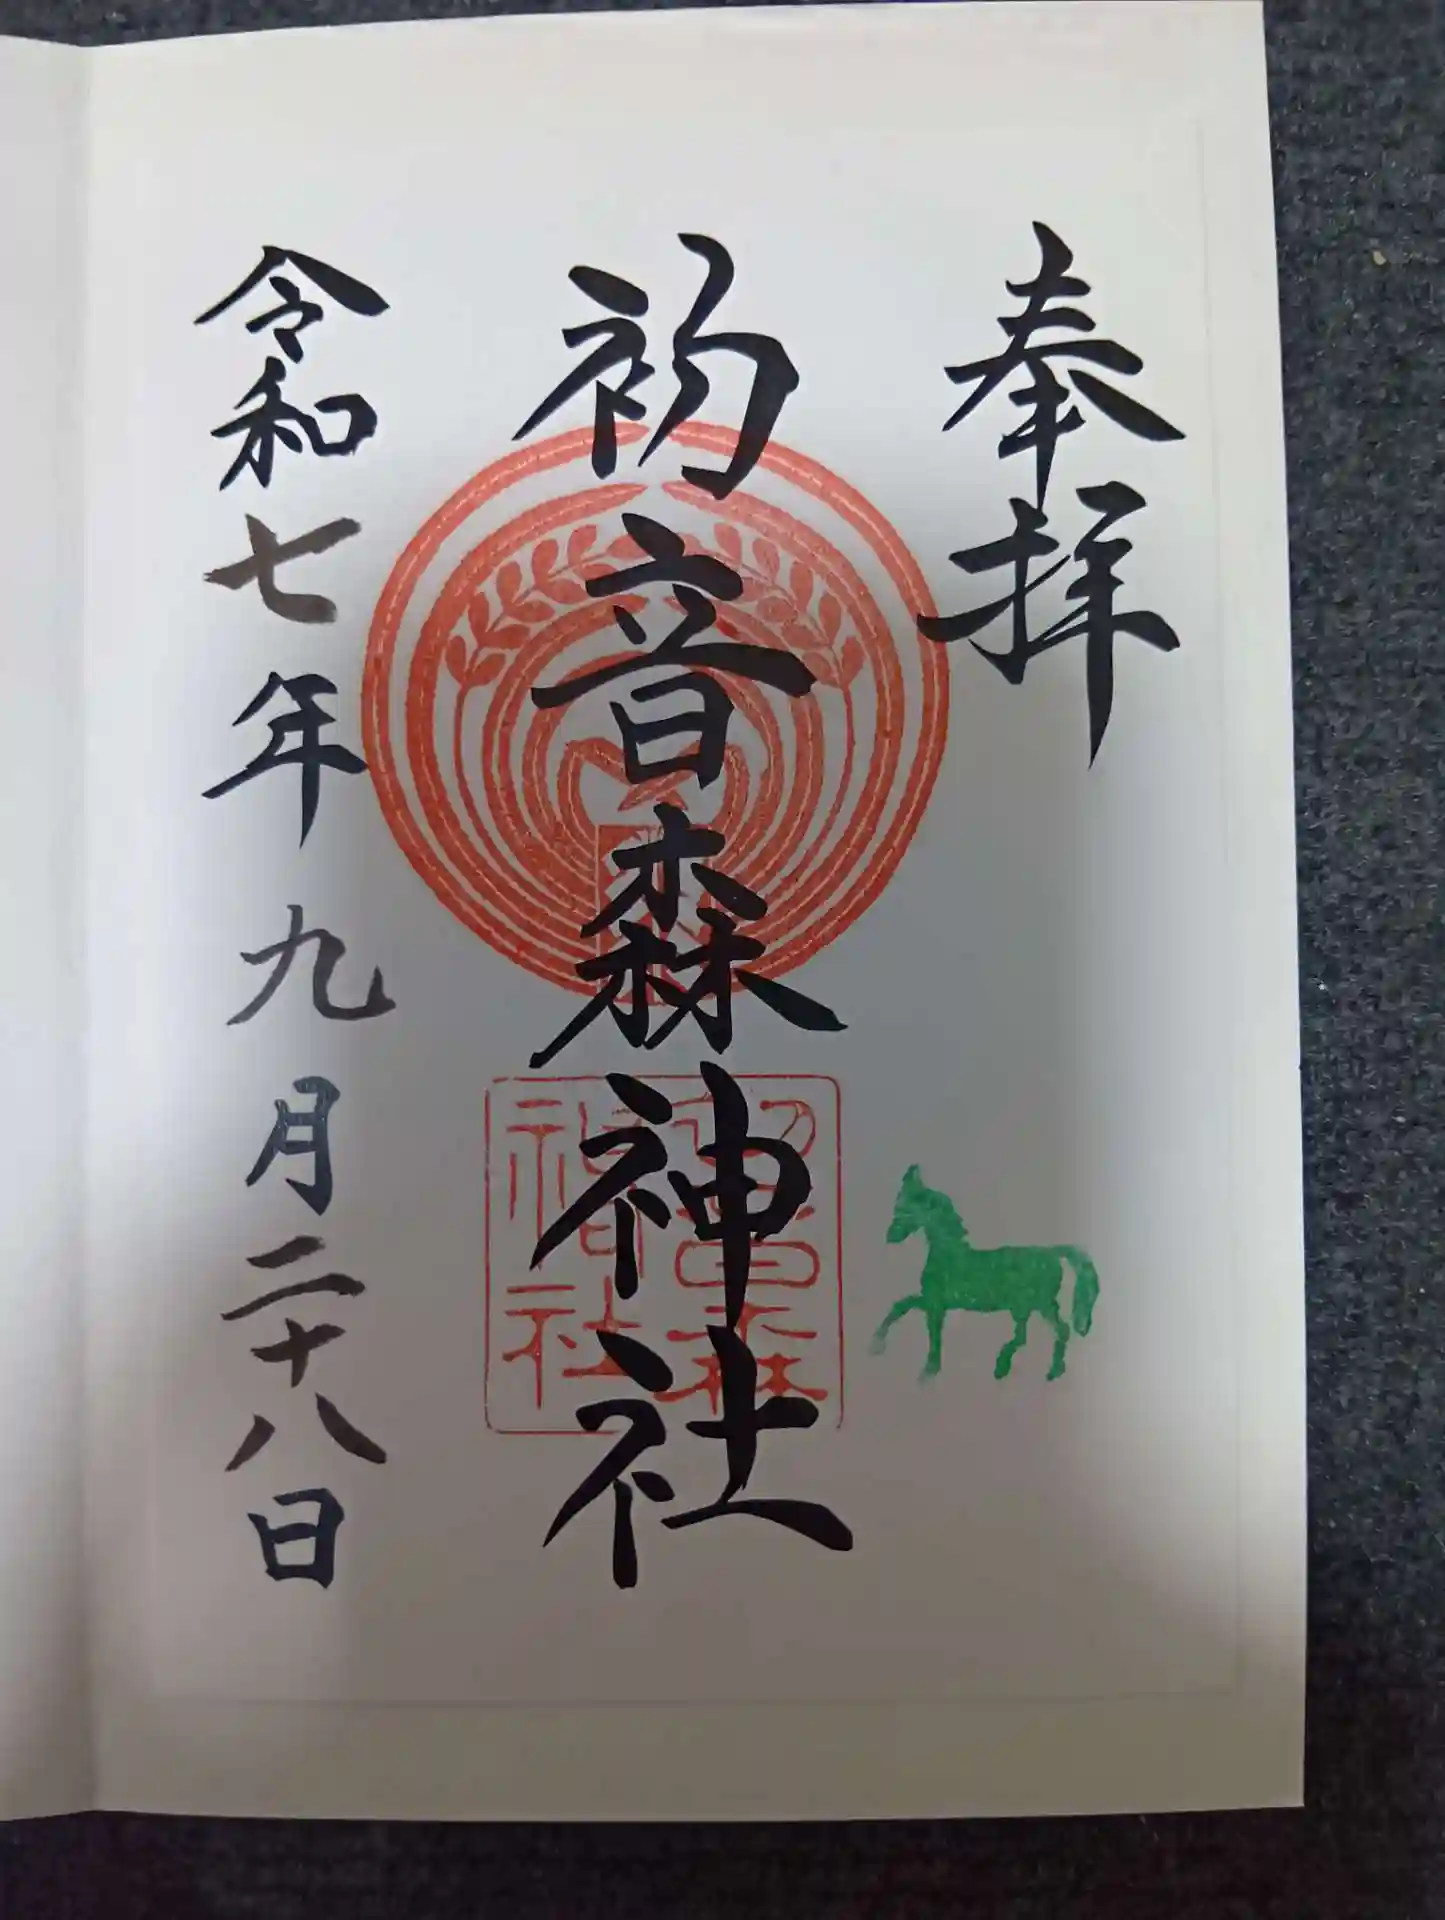 奉拝
初音森神社
令和七年九月二十八日
初音森
神社